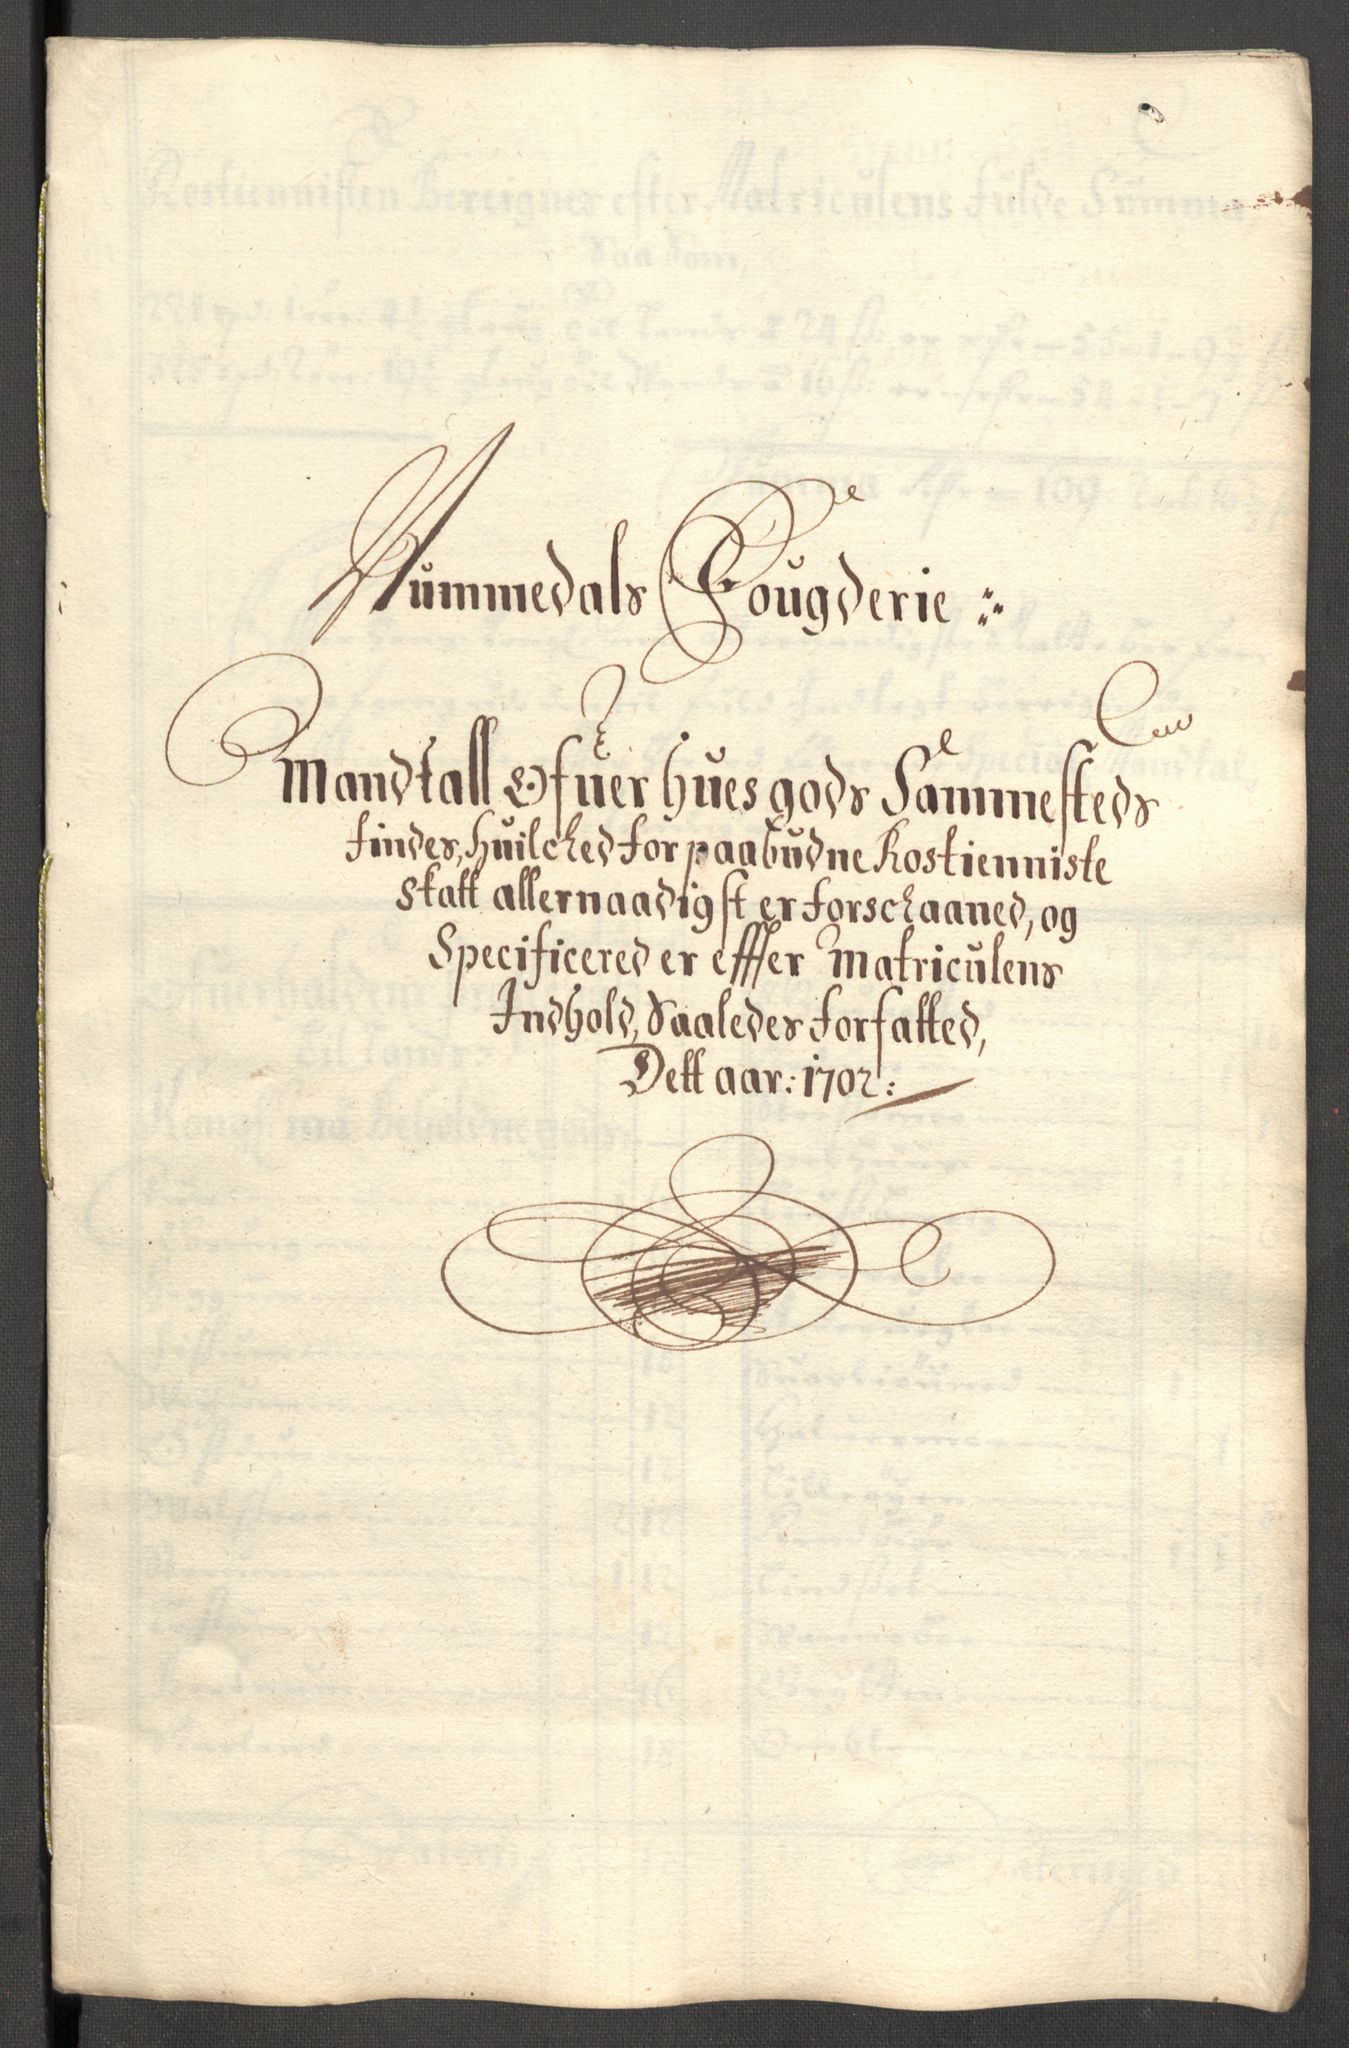 Nummedals Fougderie
Mandtall Ofuer hues gods Sammesteds
findes, huilched for paabudne Rostienniste
skatt allernaadigst er forschaaned, og
Specificered er effter Matriculens
Indhold, Saaledes forfatted,
Dett aar: 1702: